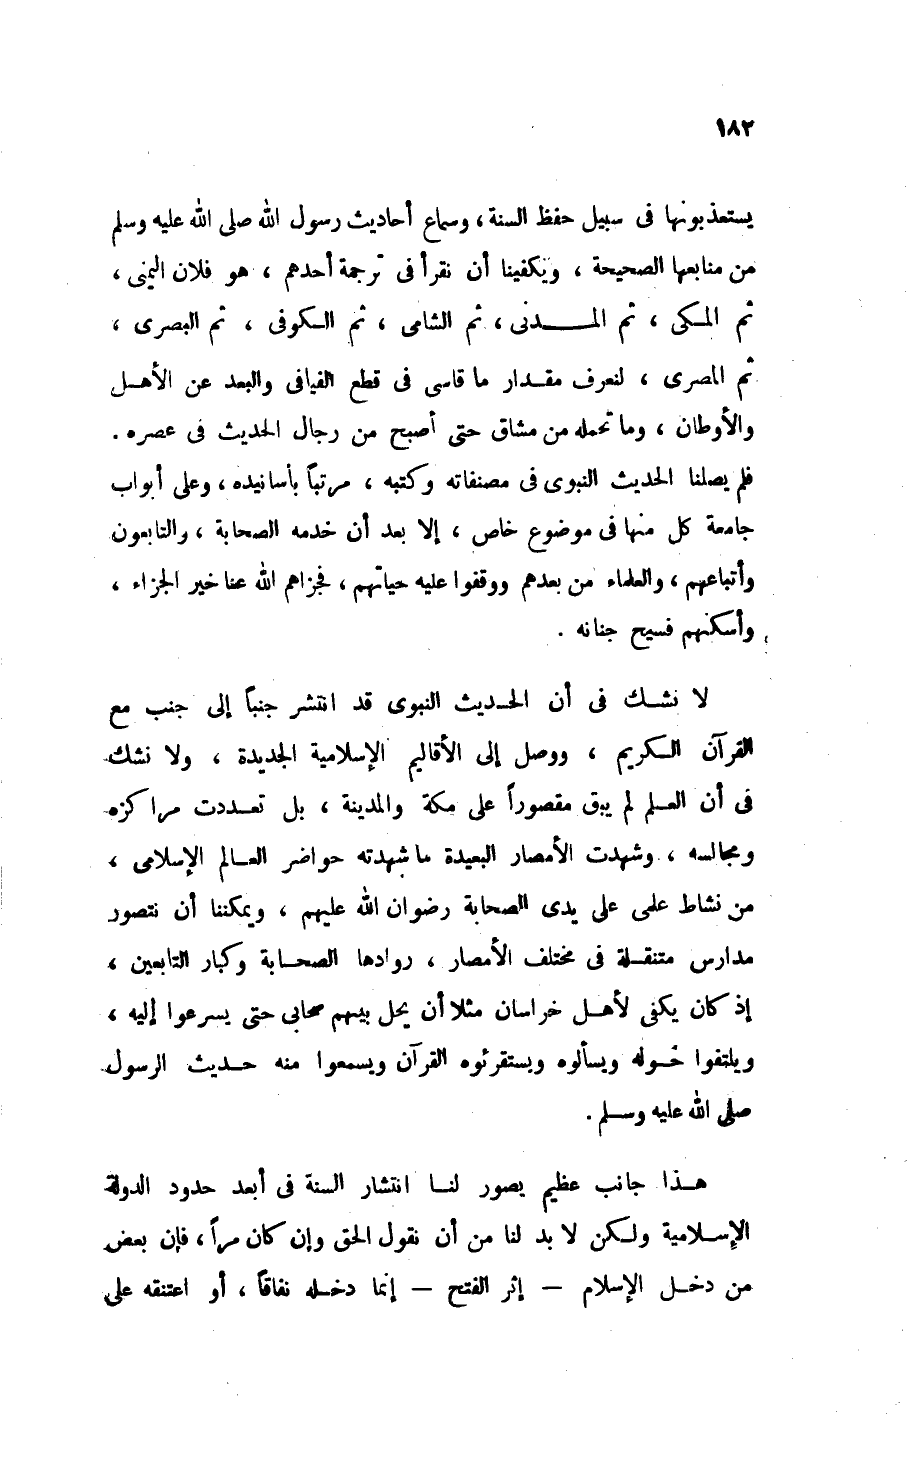 ١٨٢
يستعذبونها فى سبيل حفظ السنة ، وسماع أحاديث رسول الله صلى الله عليه وسلم
من منابعها الصحيحة ، ويكفينا أن نقرأ فى ترجمة أحدهم ، هو فلان اليمنى ،
ثم المكى ، ثم المــــدنى ، ثم الشامى ، ثم الـكوفى ، ثم البصرى ،
ثم المصرى ، لنعرف مقـدار ما قاسى فى قطع الفيافى والبعد عن الأهـل
والأوطان ، وما تحمله من مشاق حتى أصبح من رجال الحديث فى عصره .
فلم يصلنا الحديث النبوى فى مصنفاته وكتبه ، مرتباً بأسانيده ، وعلى أبواب
جامعة كل منها فى موضوع خاص ، إلا بعد أن خدمه الصحابة ، والتابعون
وأتباعهم ، والعلماء من بعدهم ووقفوا عليه حياتهم ، فجزاهم الله عنا خير الجزاء ،
وأسكنهم فسيح جنانه .
لا نشـك فى أن الحـديث النبوى قد انتشر جنباً إلى جنب مع
القرآن الـكريم ، ووصل إلى الأقاليم الإسلامية الجديدة ، ولا نشك
فى أن العـلم لم يبق مقصوراً على مكة والمدينة ، بل تعـددت مراكزه
ومجالسه ، وشهدت الأمصار البعيدة ما شهدته حواضر العـالم الإسلامى ،
من نشاط علمى على يدى الصحابة رضوان الله عليهم ، ويمكننا أن نتصور
مدارس متنقـلة فى مختلف الأمصار ، روادها الصحـابة وكبار التابعين ،
إذ كان يكفى لأهـل خراسان مثلا أن يحل بينهم صحابى حتى يسرعوا إليه ،
ويلتفوا حـوله ويسألوه ويستقرئوه القرآن ويسمعوا منه حـديث الرسول
صلى الله عليه وسـلم .
هـذا جانب عظيم يصور لنـا انتشار السنة فى أبعد حدود الدولة
الإسـلامية ولـكن لا بد لنا من أن نقول الحق وإن كان مراً ، فإن بعض
من دخـل الإسلام — إثر الفتح — إنما دخـله نفاقاً ، أو اعتنقه على